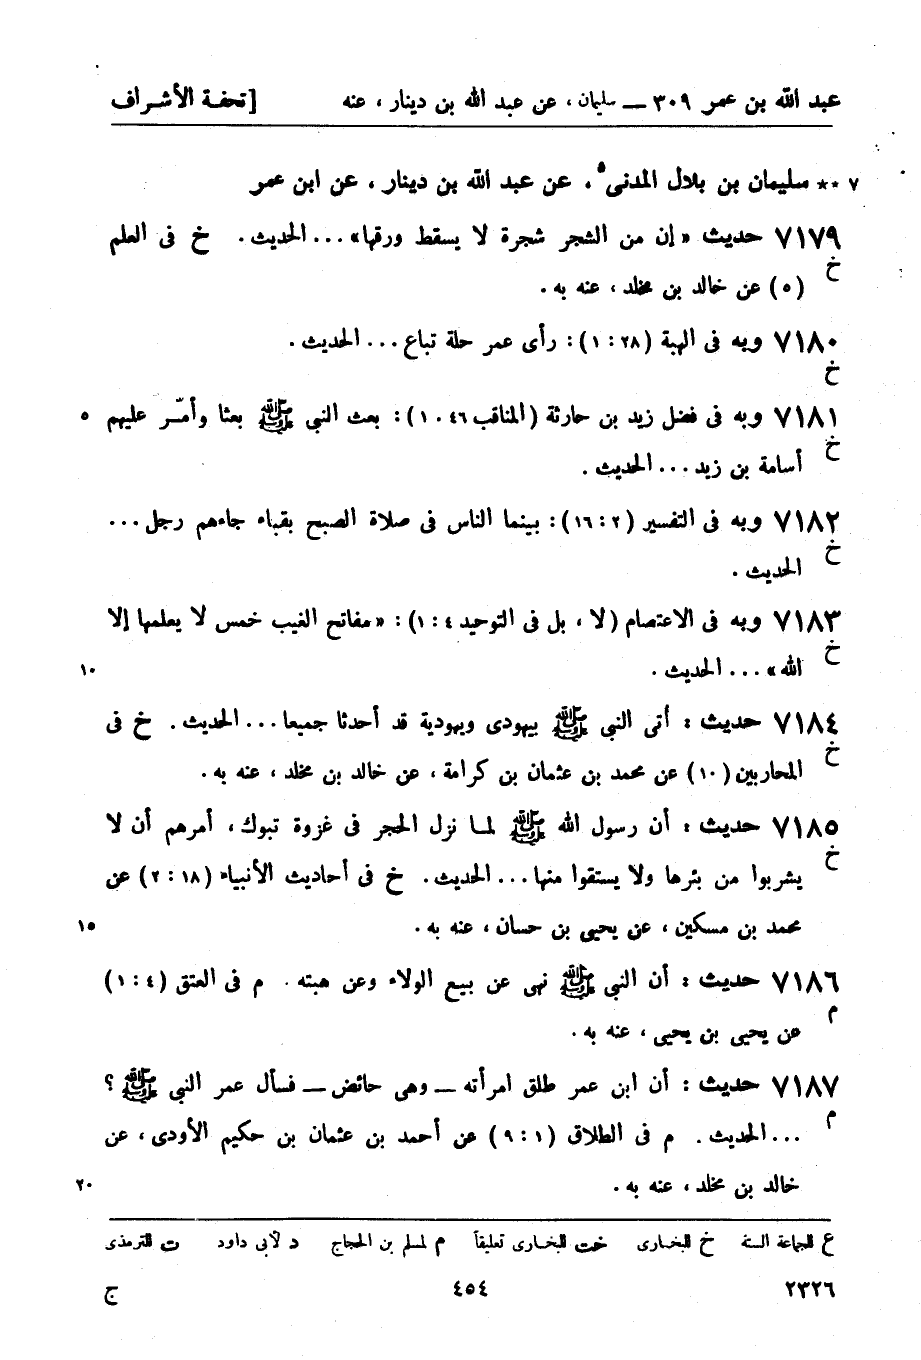 عبد الله بن عمر ٣٠٩ — سليمان ، عن عبد الله بن دينار ، عنه [تحفة الأشراف
٧ ** سليمان بن بلال المدنى ، عن عبد الله بن دينار ، عن ابن عمر
٧١٧٩ حديث « إن من الشجر شجرة لا يسقط ورقها» ... الحديث . خ فى العلم
خ (٥) عن خالد بن مخلد ، عنه به .
٧١٨٠ وبه فى الهبة (٢٨ : ١) : رأى عمر حلة تباع ... الحديث .
خ
٧١٨١ وبه فى فضل زيد بن حارثة (المناقب ٤٦ ، ١) : بعث النبى ﷺ بعثا وأمّر عليهم ٥
خ أسامة بن زيد ... الحديث .
٧١٨٢ وبه فى التفسير (٢ : ١٦) : بينما الناس فى صلاة الصبح بقباء جاءهم رجل ...
خ الحديث .
٧١٨٣ وبه فى الاعتصام (لا ، بل فى التوحيد ٤ : ١) : « مفاتح الغيب خمس لا يعلمها إلا
خ الله » ... الحديث . ١٠
٧١٨٤ حديث : أتى النبى ﷺ بيهودى ويهودية قد أحدثا جميعا ... الحديث . خ فى
خ المحاربين (١٠) عن محمد بن عثمان بن كرامة ، عن خالد بن مخلد ، عنه به .
٧١٨٥ حديث : أن رسول الله ﷺ لما نزل الحجر فى غزوة تبوك ، أمرهم أن لا
خ يشربوا من بئرها ولا يستقوا منها ... الحديث . خ فى أحاديث الأنبياء (١٨ : ٢) عن
محمد بن مسكين ، عن يحيى بن حسان ، عنه به . ١٥
٧١٨٦ حديث : أن النبى ﷺ نهى عن بيع الولاء وعن هبته . م فى العتق (٤ : ١)
م عن يحيى بن يحيى ، عنه به .
٧١٨٧ حديث : أن ابن عمر طلق امرأته — وهى حائض — فسأل عمر النبى ﷺ ؟
م ... الحديث . م فى الطلاق (١ : ٩) عن أحمد بن عثمان بن حكيم الأودى ، عن
خالد بن مخلد ، عنه به . ٢٠
ع للجماعة الستة خ للبخارى خت للبخارى تعليقاً م لمسلم بن الحجاج د لأبى داود ت للترمذى
٢٣٢٦ ٤٥٤ ج